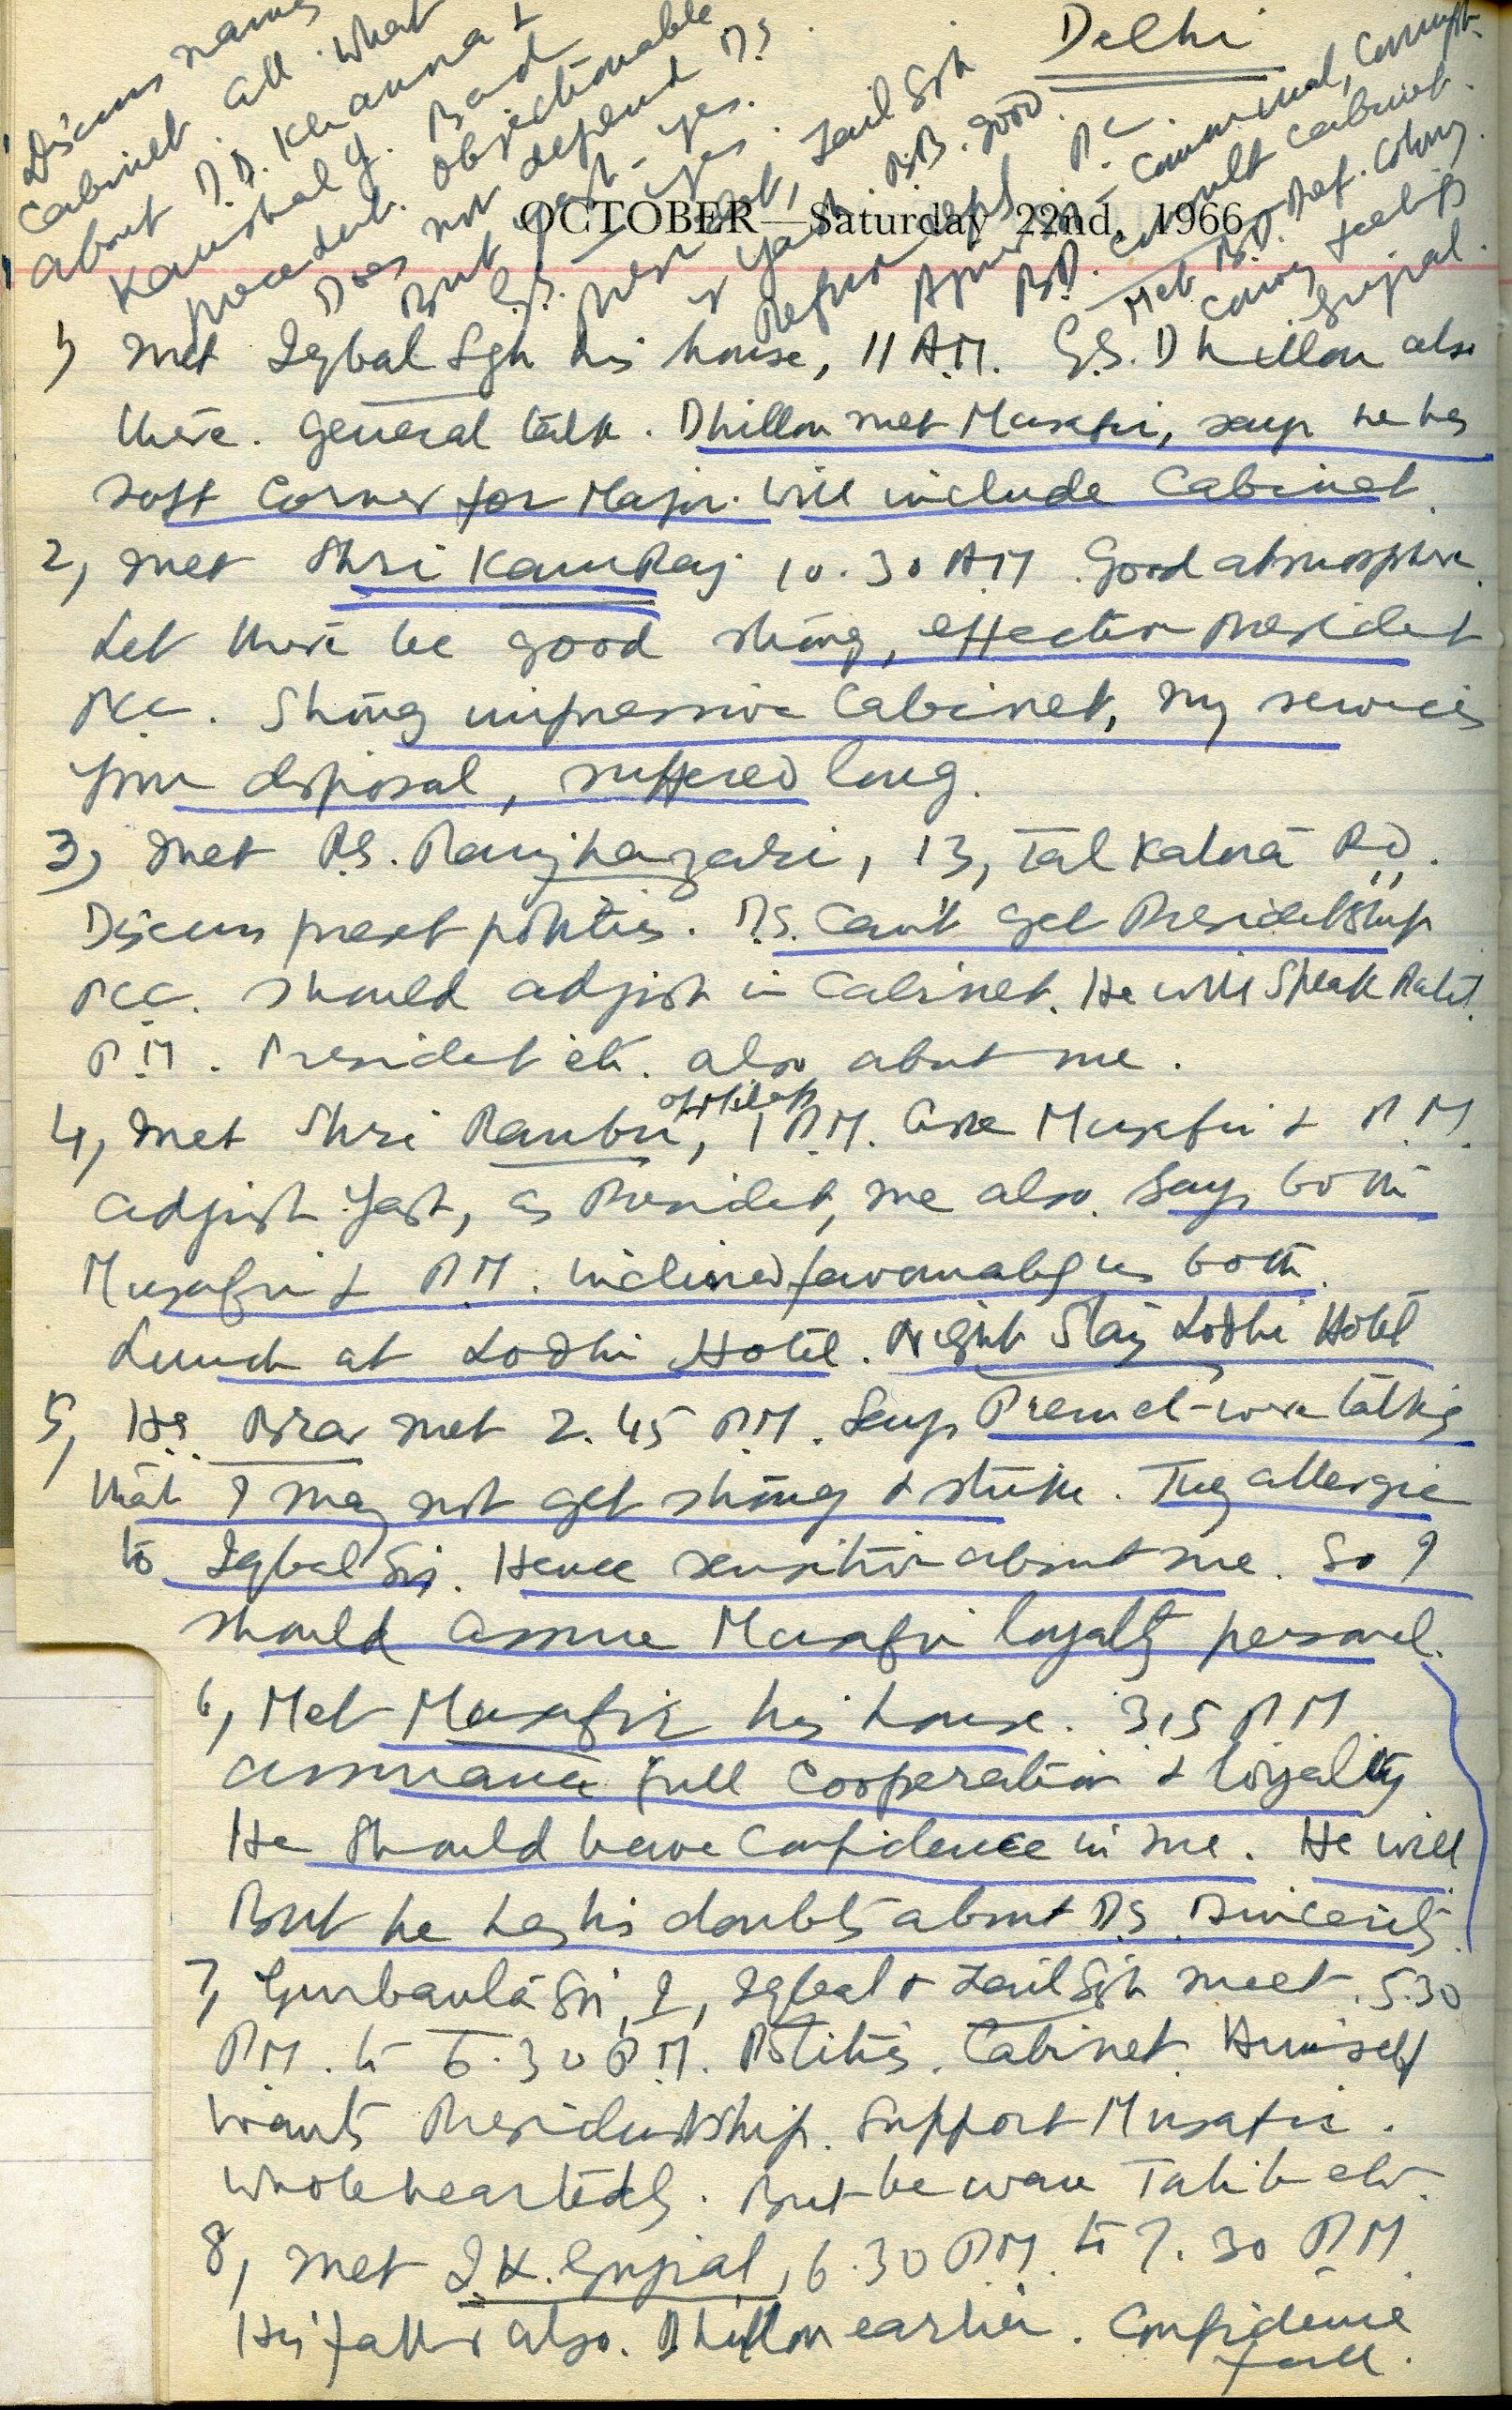 Delhi
OCTOBER—Saturday 22nd, 1966
Discuss names
Cabinet. all. what
about D.D. Khanna &
Kaushal if. Bad
precedent. Objectionable
Does not depend D.S.
But Yash - yes.
G.S. - yes.
President, Zail Sgh
if Yash. B.B. good.
P.C.
communal, corrupt.
B.D. consult cabinet.
Met B.D. Def. Colony.
convey feelings
Gujral.
1, met Iqbal Sgh his house, 11 A.M. G.S. Dhillon also
there. General talk. Dhillon met Musafir, says he has
soft corner for Major. Will include Cabinet.
2, met Shri KamRaj 10.30 AM. Good atmosphere.
Let there be good strong, effective President
PCC. Strong impressive Cabinet, my services
your disposal, suffered long.
3, met R.S. Panjhazari, 13, Tal Katora Rd.
Discuss present politics. D.S. can't get Presidentship
PCC. should adjust in Cabinet. He will speak
P.M. President etc. also about me.
4, met Shri Ranbir, of Milap 1 P.M. Ask Musafir & P.M.
adjust Yash, as President, me also. Says both
Musafir & P.M. inclined favourably us both.
Lunch at Lodhi Hotel. Night Stay Lodhi Hotel
5, H.S. Brar met 2.45 P.M. Says Prem etc were talking
that I may not get strong & strike. They allergic
to Iqbal Sin. Hence sensitive about me. So I
should assure Musafir loyalty personal.
6, Met Musafir his house. 3.15 PM
assurance full cooperation & loyality
He should have confidence in me. He will
But he has his doubts about D.S. sincerity.
7, Gurbanta Sin, I, Iqbal & Zail Sgh meet. 5.30
P.M. to 6.30 P.M. Politics. Cabinet. Himself
wants Presidentship. Support Musafir.
Wholeheartedly. But beware Talib etc.
8, met I.K. Gujral, 6.30 P.M. to 7.30 P.M.
His father also. Dhillon earlier. Confidence
full.